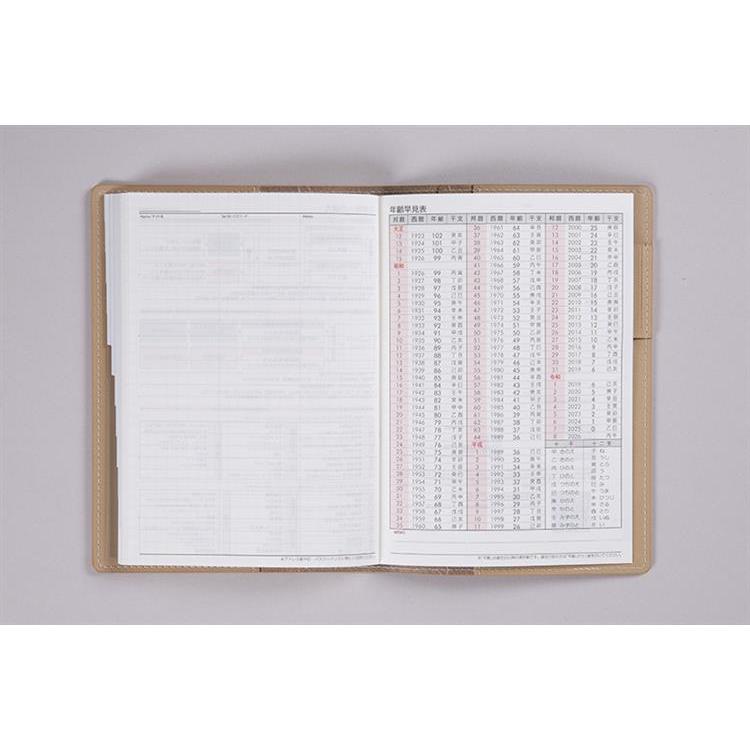 Name/サイト名
Memo
年齢早見表
邦暦 西暦 年齢 干支
大正
12 1923 102 癸亥
13 1924 101 甲子
14 1925 100 乙丑
15 1926 99 丙寅
昭和
1 1926 99 丙寅
2 1927 98 丁卯
3 1928 97 戊辰
4 1929 96 己巳
5 1930 95 庚午
6 1931 94 辛未
7 1932 93 壬申
8 1933 92 癸酉
9 1934 91 甲戌
10 1935 90 乙亥
11 1936 89 丙子
12 1937 88 丁丑
13 1938 87 戊寅
14 1939 86 己卯
15 1940 85 庚辰
16 1941 84 辛巳
17 1942 83 壬午
18 1943 82 癸未
19 1944 81 甲申
20 1945 80 乙酉
21 1946 79 丙戌
22 1947 78 丁亥
23 1948 77 戊子
24 1949 76 己丑
25 1950 75 庚寅
26 1951 74 辛卯
27 1952 73 壬辰
28 1953 72 癸巳
29 1954 71 甲午
30 1955 70 乙未
31 1956 69 丙申
32 1957 68 丁酉
33 1958 67 戊戌
34 1959 66 己亥
35 1960 65 庚子
邦暦 西暦 年齢 干支
36 1961 64 辛丑
37 1962 63 壬寅
38 1963 62 癸卯
39 1964 61 甲辰
40 1965 60 乙巳
41 1966 59 丙午
42 1967 58 丁未
43 1968 57 戊申
44 1969 56 己酉
45 1970 55 庚戌
46 1971 54 辛亥
47 1972 53 壬子
48 1973 52 癸丑
49 1974 51 甲寅
50 1975 50 乙卯
51 1976 49 丙辰
52 1977 48 丁巳
53 1978 47 戊午
54 1979 46 己未
55 1980 45 庚申
56 1981 44 辛酉
57 1982 43 壬戌
58 1983 42 癸亥
59 1984 41 甲子
60 1985 40 乙丑
61 1986 39 丙寅
62 1987 38 丁卯
63 1988 37 戊辰
64 1989 36 己巳
平成
1 1989 36 己巳
2 1990 35 庚午
3 1991 34 辛未
4 1992 33 壬申
5 1993 32 癸酉
6 1994 31 甲戌
7 1995 30 乙亥
8 1996 29 丙子
9 1997 28 丁丑
10 1998 27 戊寅
11 1999 26 己卯
邦暦 西暦 年齢 干支
12 2000 25 庚辰
13 2001 24 辛巳
14 2002 23 壬午
15 2003 22 癸未
16 2004 21 甲申
17 2005 20 乙酉
18 2006 19 丙戌
19 2007 18 丁亥
20 2008 17 戊子
21 2009 16 己丑
22 2010 15 庚寅
23 2011 14 辛卯
24 2012 13 壬辰
25 2013 12 癸巳
26 2014 11 甲午
27 2015 10 乙未
28 2016 9 丙申
29 2017 8 丁酉
30 2018 7 戊戌
31 2019 6 己亥
令和
1 2019 6 己亥
2 2020 5 庚子
3 2021 4 辛丑
4 2022 3 壬寅
5 2023 2 癸卯
6 2024 1 甲辰
7 2025 0 乙巳
8 2026 丙午
十干 十二支
甲 きのえ 子 ね
乙 きのと 丑 うし
丙 ひのえ 寅 とら
丁 ひのと 卯 う
戊 つちのえ 辰 たつ
己 つちのと 巳 み
庚 かのえ 午 うま
辛 かのと 未 ひつじ
壬 みずのえ 申 さる
癸 みずのと 酉 とり
戌 いぬ
亥 い
MEMO